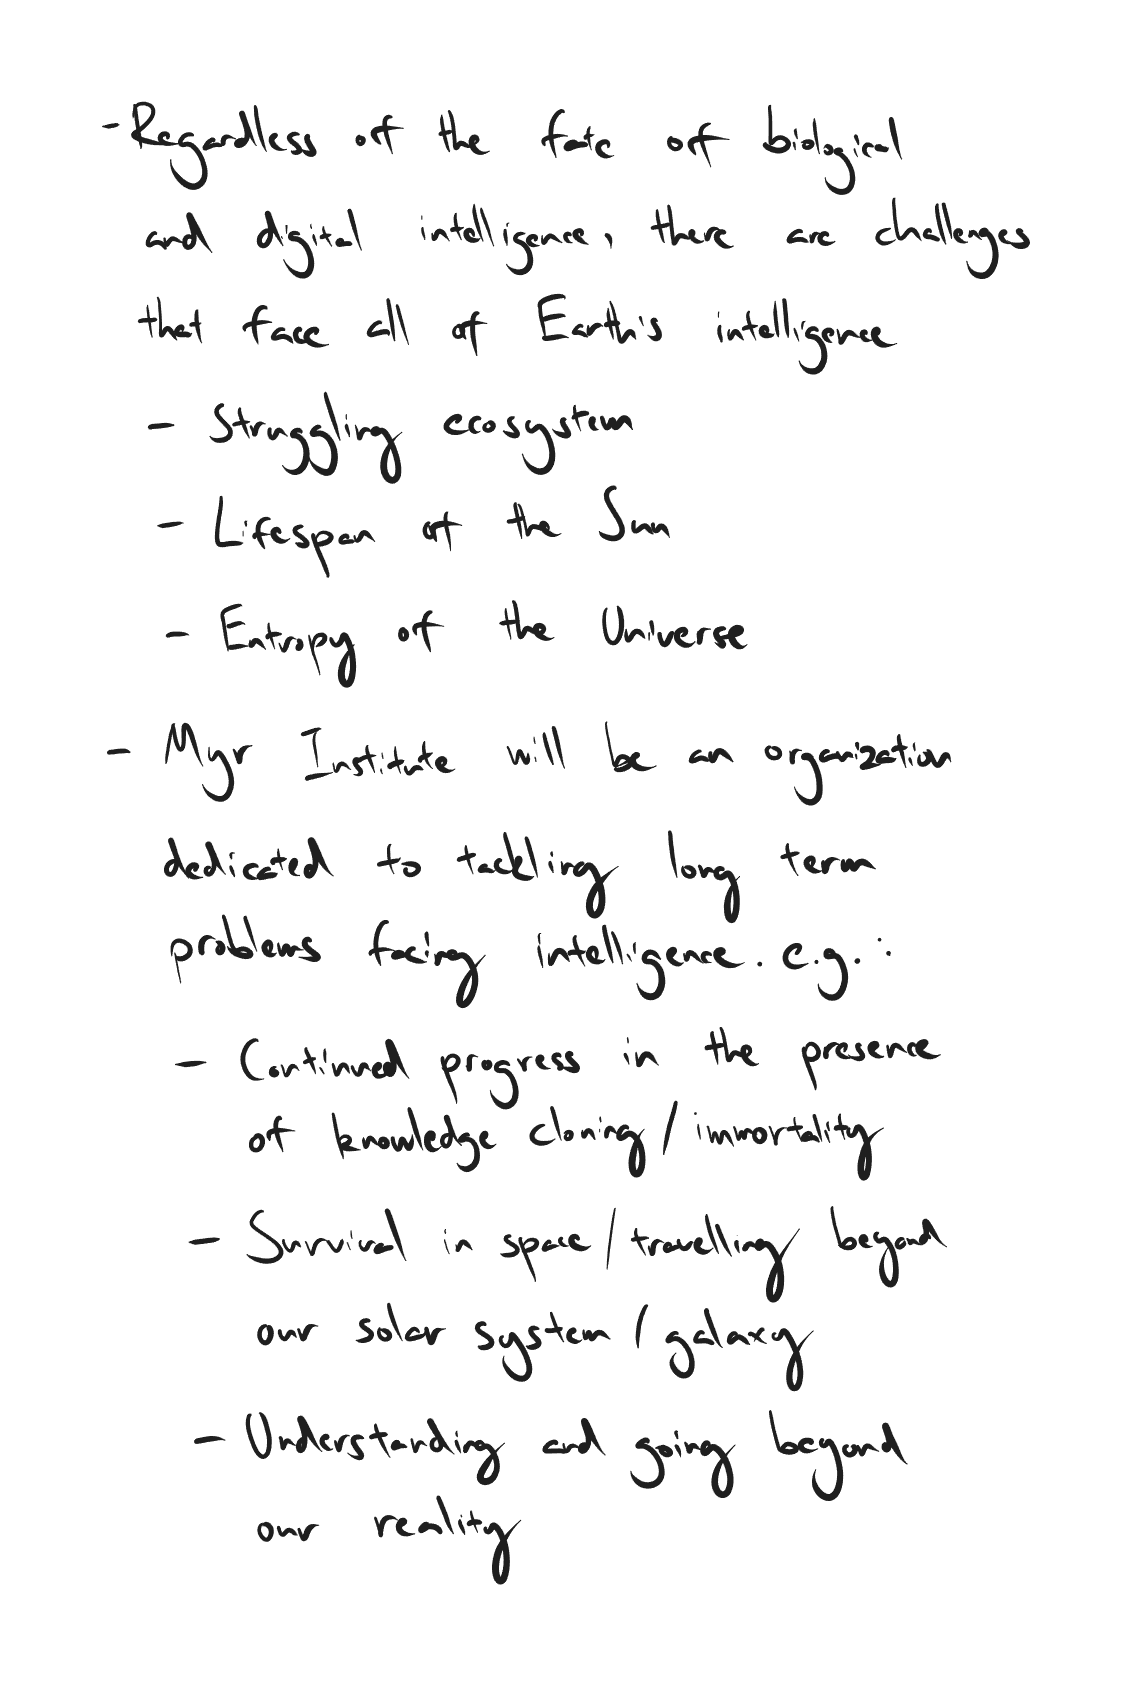 - Regardless of the fate of biological
and digital intelligence, there are challenges
that face all of Earth's intelligence
- Struggling ecosystem
- Lifespan of the Sun
- Entropy of the Universe
- Myr Institute will be an organization
dedicated to tackling long term
problems facing intelligence. e.g. :
- Continued progress in the presence
of knowledge cloning/immortality
- Survival in space/travelling beyond
our solar system/galaxy
- Understanding and going beyond
our reality